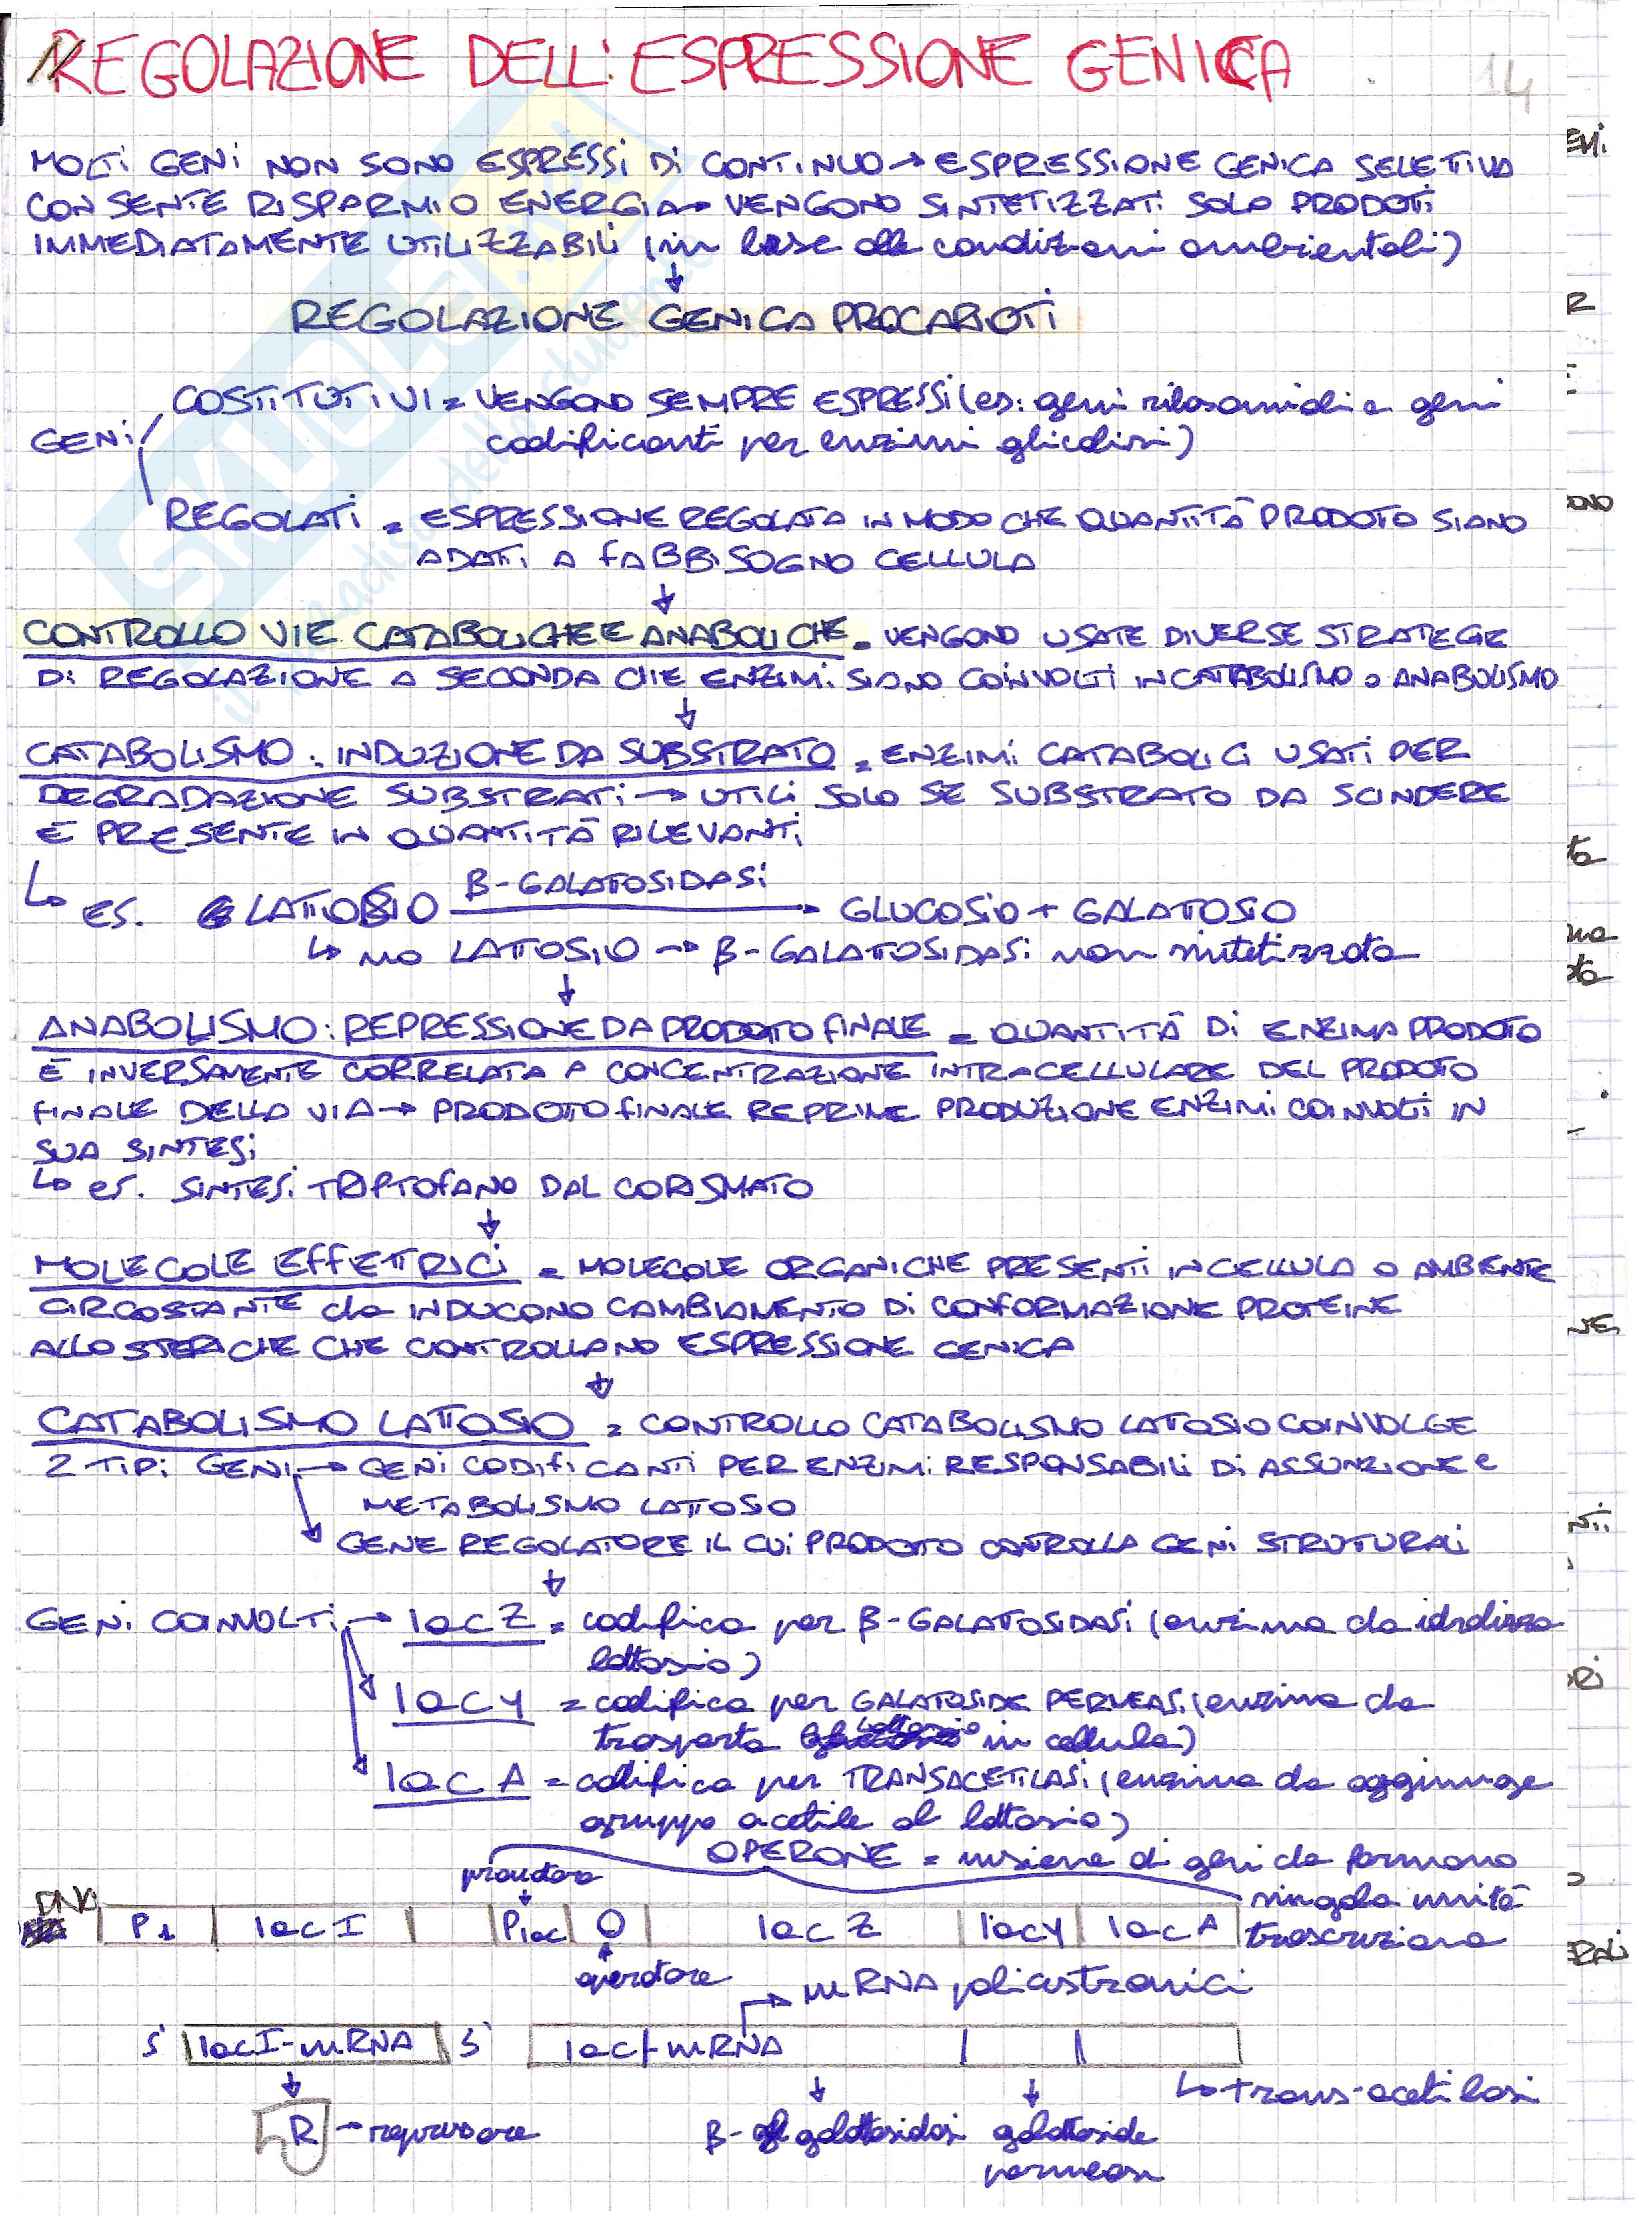 REGOLAZIONE DELL'ESPRESSIONE GENICA
14
MOLTI GENI NON SONO ESPRESSI DI CONTINUO → ESPRESSIONE GENICA SELETTIVA
CONSENTE RISPARMIO ENERGIA → VENGONO SINTETIZZATI SOLO PRODOTTI
IMMEDIATAMENTE UTILIZZABILI (in base alle condizioni ambientali)
↓
REGOLAZIONE GENICA PROCARIOTI
COSTITUTIVI = VENGONO SEMPRE ESPRESSI (es: geni ribosomidia geni
GENI
codificanti per enzimi glicolisi)
REGOLATI = ESPRESSIONE REGOLATA IN MODO CHE QUANTITÀ PRODOTTO SIANO
ADATTI A FABBISOGNO CELLULA
↓
CONTROLLO VIE CATABOLICHE E ANABOLICHE = VENGONO USATE DIVERSE STRATEGIE
DI REGOLAZIONE A SECONDA CHE ENZIMI SIANO COINVOLTI IN CATABOLISMO O ANABOLISMO
↓
CATABOLISMO: INDUZIONE DA SUBSTRATO = ENZIMI CATABOLICI USATI PER
DEGRADAZIONE SUBSTRATI → UTILI SOLO SE SUBSTRATO DA SCINDERE
È PRESENTE IN QUANTITÀ RILEVANTI
β-GALATTOSIDASI
↳ ES. LATTOSIO → GLUCOSIO + GALATTOSIO
↳ no LATTOSIO → β-GALATTOSIDASI non sintetizzata
↓
ANABOLISMO: REPRESSIONE DA PRODOTTO FINALE = QUANTITÀ DI ENZIMA PRODOTTO
È INVERSAMENTE CORRELATA A CONCENTRAZIONE INTRACELLULARE DEL PRODOTTO
FINALE DELLA VIA → PRODOTTO FINALE REPRIME PRODUZIONE ENZIMI COINVOLTI IN
SUA SINTESI
↳ es. SINTESI TRIPTOFANO DAL CORISMATO
↓
MOLECOLE EFFETTRICI = MOLECOLE ORGANICHE PRESENTI IN CELLULA O AMBIENTE
CIRCOSTANTE che INDUCONO CAMBIAMENTO DI CONFORMAZIONE PROTEINE
ALLOSTERICHE CHE CONTROLLANO ESPRESSIONE GENICA
↓
CATABOLISMO LATTOSIO = CONTROLLO CATABOLISMO LATTOSIO COINVOLGE
2 TIPI GENI → GENI CODIFICANTI PER ENZIMI RESPONSABILI DI ASSUNZIONE e
METABOLISMO LATTOSO
GENE REGOLATORE IL CUI PRODOTTO CONTROLLA GENI STRUTTURALI
↓
GENI COINVOLTI → lac Z = codifica per β-GALATTOSIDASI (enzima che idrolizza
lattosio)
lac Y = codifica per GALATTOSIDE PERMEASI (enzima che
trasporta lattosio in cellula)
lac A = codifica per TRANSACETILASI (enzima che aggiunge
gruppo acetile al lattosio)
OPERONE = insieme di geni che formano
promotore
singola unità
DNA
P1 lac I Plac O lac Z lacY lac A
trascrizione
operatore
→ mRNA policistronici
5' lacI-mRNA 3' lac-mRNA
↓ ↓ ↓ ↳ trans-acetilasi
R → repressore β-galattosidasi galattoside
permeasi